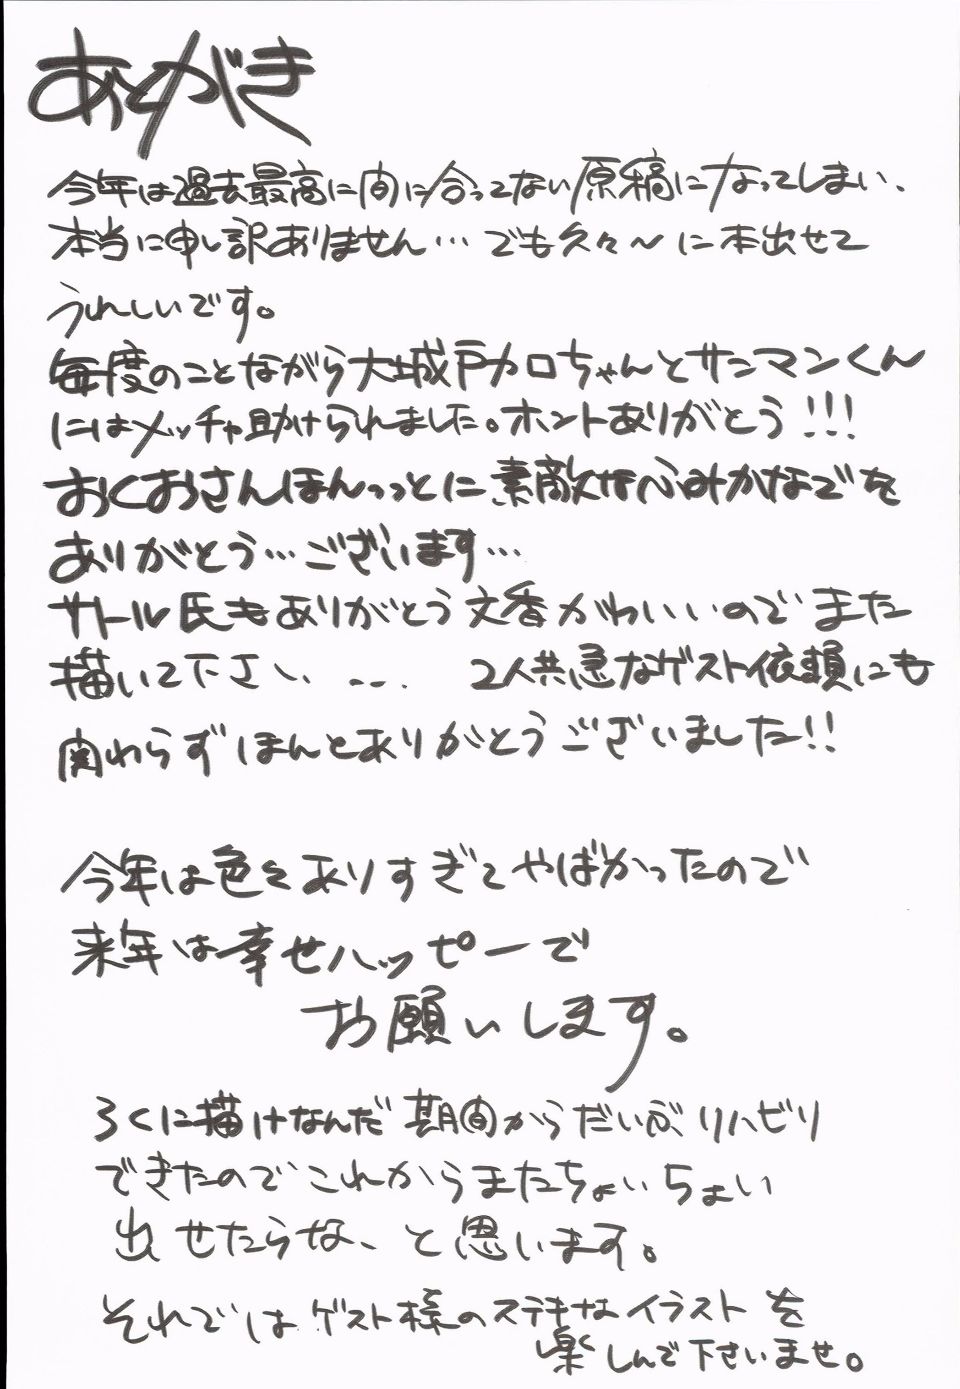 あとがき
今年は過去最高に間に合ってない原稿になってしまい、
本当に申し訳ありません…でも久々〜に本出せて
うれしいです。
毎度のことながら大城戸カロちゃんとサンマンくん
にはメッチャ助けられました。ホントありがとう!!!
おくおさんほんっっとに素敵なふみかなでを
ありがとう…ございます…
サトル氏もありがとう文香かわいいのでまた
描いて下さい… 2人共急なゲスト依頼にも
関わらずほんとありがとうございました!!
今年は色々ありすぎてやばかったので
来年は幸せハッピーで
お願いします。
ろくに描けなんだ期間からだいぶ、リハビリ
できたのでこれからまたちょいちょい
出せたらな、と思います。
それではゲスト様のステキなイラストを
楽しんで下さいませ。